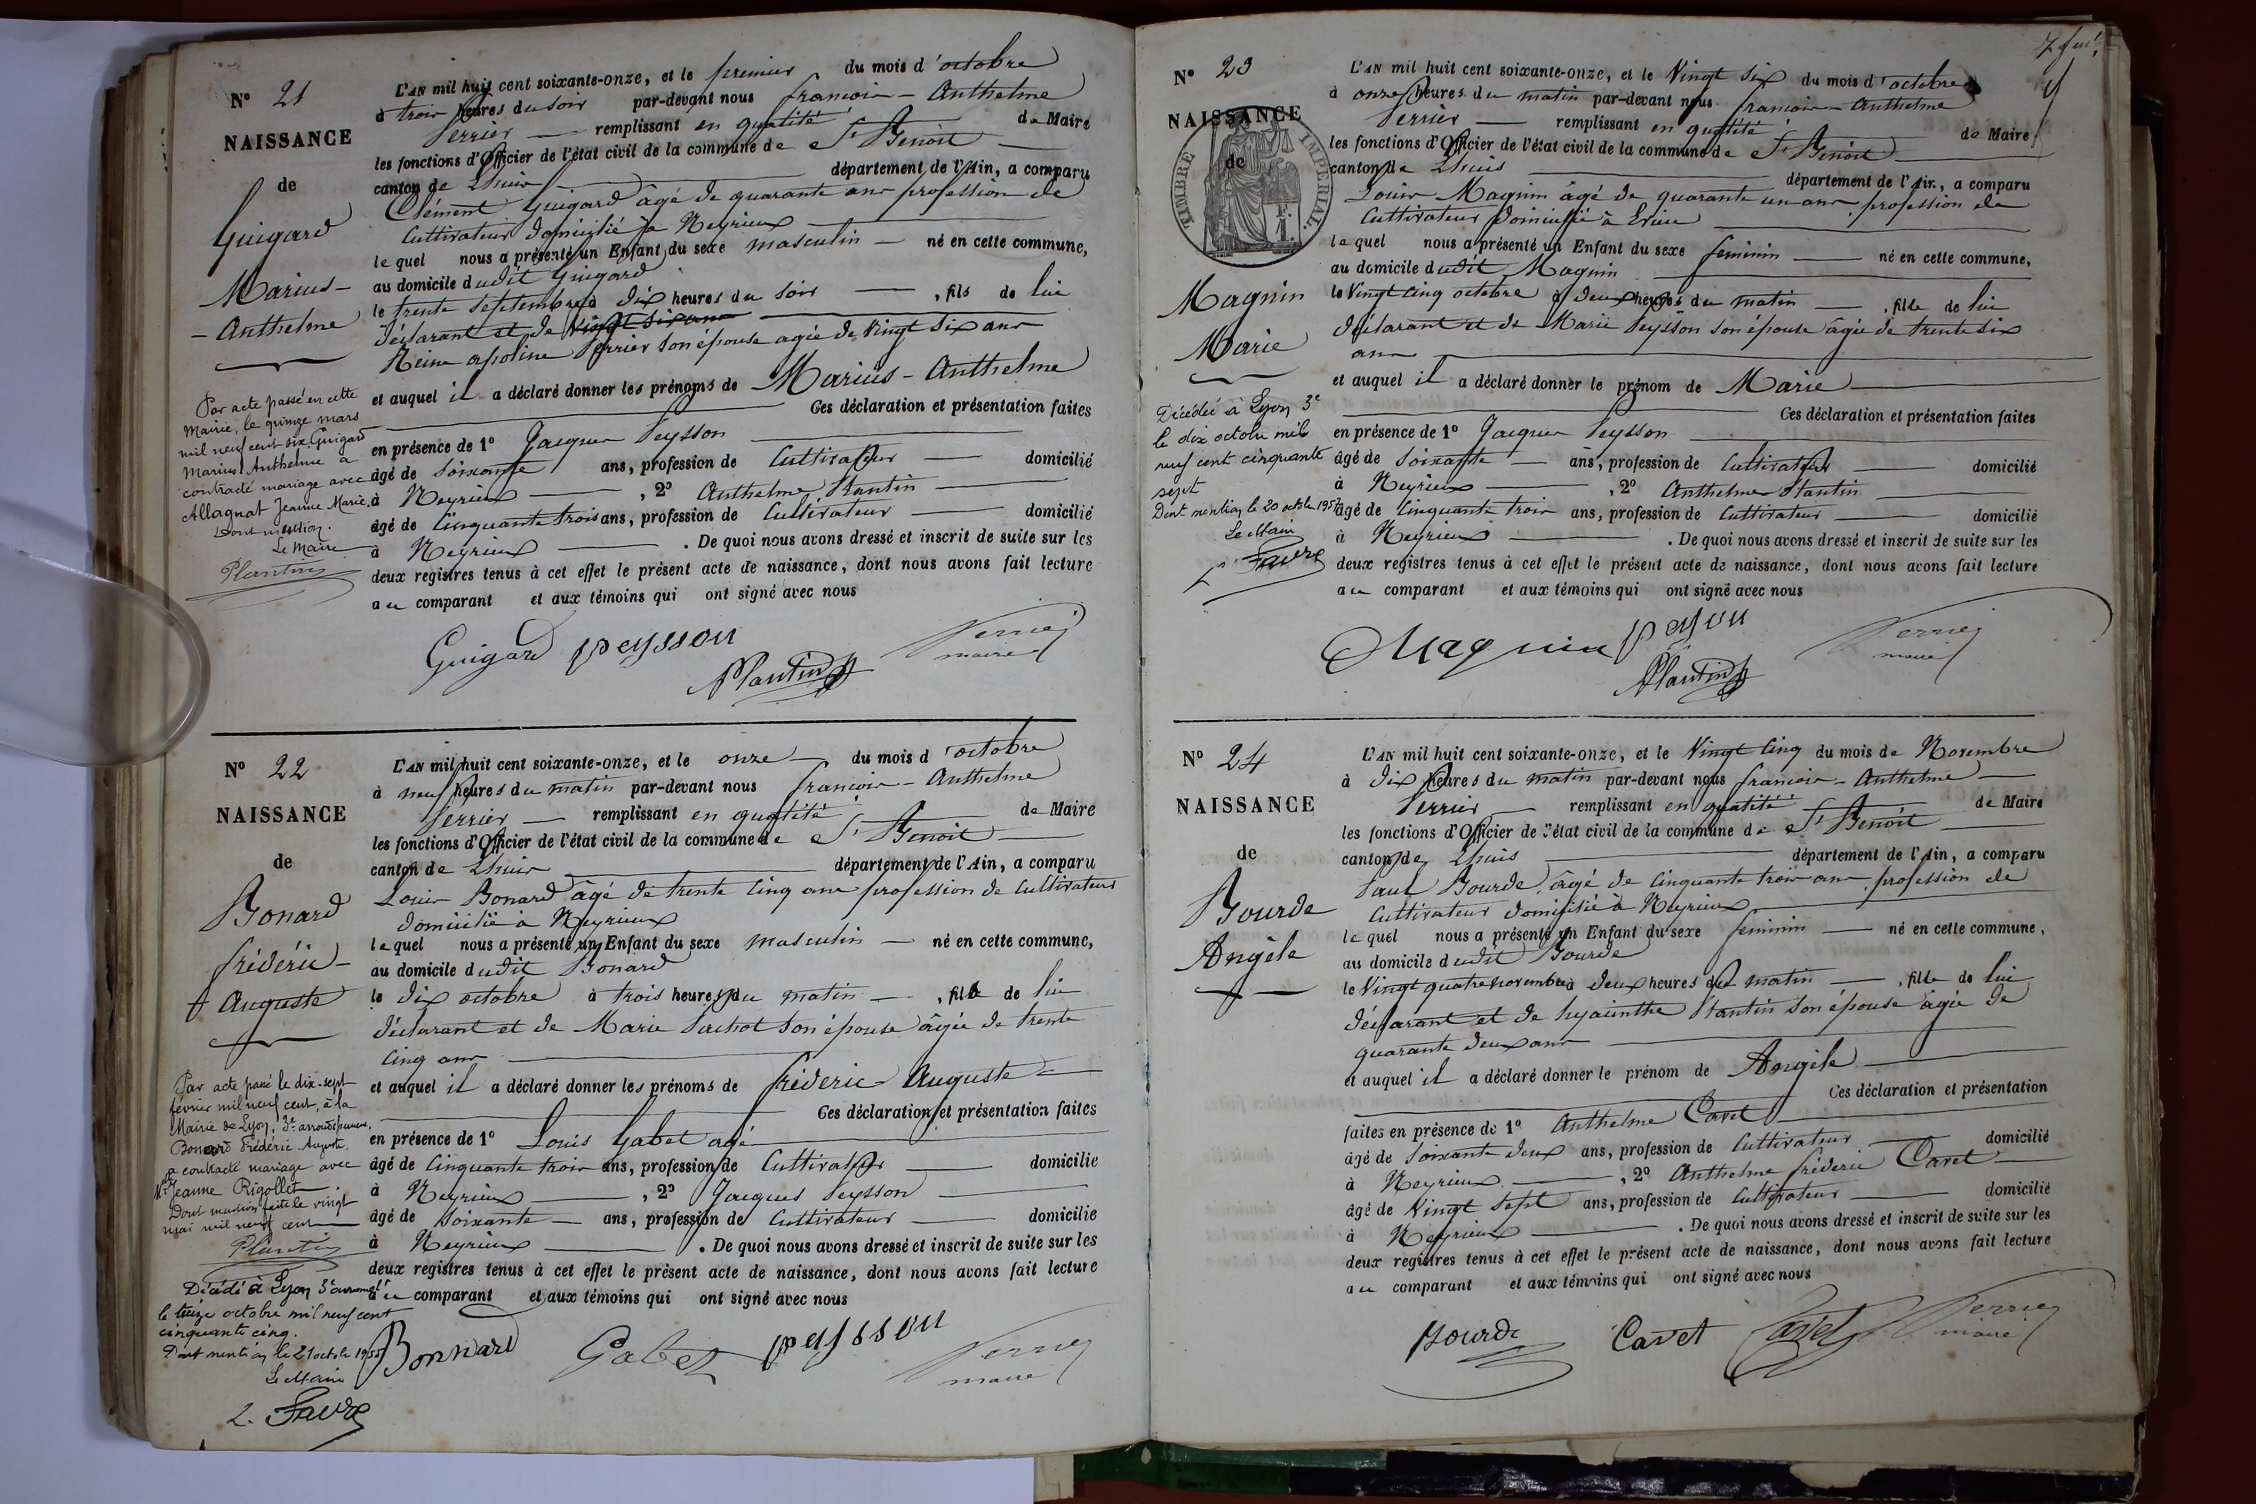 N° 21
NAISSANCE
de
Guigard
Marius-
- Anthelme
Par acte passé en cette
Mairie, le quinze mars
mil neuf cent six, Guigard
Marius Anthelme a
contracté mariage avec
Allagnat Jeanne Marie.
Dont mention.
Le Maire
Plantin
L'AN mil huit cent soixante-onze, et le premier du mois d'octobre
à trois heures du soir par-devant nous françois - Anthelme
Perrier remplissant en qualité de Maire
les fonctions d'Officier de l'état civil de la commune de St Benoit
canton de Lhuis département de l'Ain, a comparu
Clément Guigard âgé de quarante ans profession de
Cultivateur domicilié à Neyrieux
lequel nous a présenté un Enfant du sexe masculin né en cette commune,
au domicile dudit Guigard
le trente septembre à dix heures du soir , fils de lui
déclarant et de vingt six ans
Reine apoline Perrier son épouse agée de vingt six ans
et auquel il a déclaré donner les prénoms de Marius - Anthelme
Ces déclaration et présentation faites
en présence de 1° Jacques Peysson
âgé de soixante ans, profession de Cultivateur domicilié
à Neyrieux , 2° Anthelme Plantin
âgé de cinquante trois ans, profession de Cultivateur domicilié
à Neyrieux . De quoi nous avons dressé et inscrit de suite sur les
deux registres tenus à cet effet le présent acte de naissance, dont nous avons fait lecture
au comparant et aux témoins qui ont signé avec nous
Guigard peysson Perrier
maire
Plantin
N° 22
NAISSANCE
de
Bonard
fréderic -
Auguste
Par acte passé le dix-sept
février mil neuf cent, à la
Mairie de Lyon, 3e arrondissement,
Bonard Frédéric Auguste
a contracté mariage avec
Mlle Jeanne Rigollet
Dont mention faite le vingt
mai mil neuf cent
Plantin
Décédé à Lyon 3e arrondt
le treize octobre mil neuf cent
cinquante cinq.
Dont mention le 21 octobre 1955
Le Maire
L. Favre
L'AN mil huit cent soixante-onze, et le onze du mois d'octobre
à neuf heures du matin par-devant nous françois - Anthelme
Perrier remplissant en qualité de Maire
les fonctions d'Officier de l'état civil de la commune de St Benoit
canton de Lhuis département de l'Ain, a comparu
Louis Bonard âgé de trente cinq ans profession de Cultivateur
domicilié à Neyrieux
lequel nous a présenté un Enfant du sexe masculin né en cette commune,
au domicile dudit Bonard
le dix octobre à trois heures du matin , fils de lui
déclarant et de Marie Pachot son épouse âgée de trente
cinq ans
et auquel il a déclaré donner les prénoms de fréderic Auguste
Ces déclaration et présentation faites
en présence de 1° Louis Gabet agé
âgé de cinquante trois ans, profession de Cultivateur domicilié
à Neyrieux , 2° Jacques Peysson
âgé de soixante ans, profession de Cultivateur domicilié
à Neyrieux . De quoi nous avons dressé et inscrit de suite sur les
deux registres tenus à cet effet le présent acte de naissance, dont nous avons fait lecture
au comparant et aux témoins qui ont signé avec nous
Bonnard Gabet peysson Perrier
maire
N° 23
NAISSANCE
de
TIMBRE IMPERIAL.
Magnin
Marie
Décédée à Lyon 3e
le dix octobre mil
neuf cent cinquante
sept
Dont mention le 20 octobre 1957
Le Maire
L. Favre
L'AN mil huit cent soixante-onze, et le vingt six du mois d'octobre
à onze heures du matin par-devant nous françois - Anthelme
Perrier remplissant en qualité de Maire
les fonctions d'Officier de l'état civil de la commune de St Benoit
canton de Lhuis département de l'Ain, a comparu
Louis Magnin âgé de quarante un ans, profession de
Cultivateur domicilié à Erieu
lequel nous a présenté un Enfant du sexe feminin né en cette commune,
au domicile dudit Magnin
le vingt cinq octobre à deux heures du matin , fille de lui
déclarant et de Marie Peysson son épouse âgée de trente six
ans
et auquel il a déclaré donner le prénom de Marie
Ces déclaration et présentation faites
en présence de 1° Jacques Peysson
âgé de soixante ans, profession de Cultivateur domicilié
à Neyrieux , 2° Anthelme Plantin
âgé de cinquante trois ans, profession de Cultivateur domicilié
à Neyrieux . De quoi nous avons dressé et inscrit de suite sur les
deux registres tenus à cet effet le présent acte de naissance, dont nous avons fait lecture
au comparant et aux témoins qui ont signé avec nous
Magnin peyson Perrier
maire
Plantin
N° 24
NAISSANCE
de
Bourde
Angèle
L'AN mil huit cent soixante-onze, et le vingt cinq du mois de Novembre
à dix heures du matin par-devant nous françois - Anthelme
Perrier remplissant en qualité de Maire
les fonctions d'Officier de l'état civil de la commune de St Benoit
canton de Lhuis département de l'Ain, a comparu
Paul Bourde, âgé de cinquante trois ans, profession de
Cultivateur domicilié à Neyrieux
lequel nous a présenté un Enfant du sexe feminin né en cette commune,
au domicile dudit Bourde
le vingt quatre novembre à deux heures du matin , fille de lui
déclarant et de hyacinthe Plantin son épouse âgée de
quarante deux ans
et auquel il a déclaré donner le prénom de Angèle
Ces déclaration et présentation
faites en présence de 1° Anthelme Cavet
âgé de soixante deux ans, profession de Cultivateur domicilié
à Neyrieux , 2° Anthelme fréderic Cavet
âgé de vingt sept ans, profession de Cultivateur domicilié
à Neyrieux . De quoi nous avons dressé et inscrit de suite sur les
deux registres tenus à cet effet le présent acte de naissance, dont nous avons fait lecture
au comparant et aux témoins qui ont signé avec nous
Bourde Cavet Cavet Perrier
maire